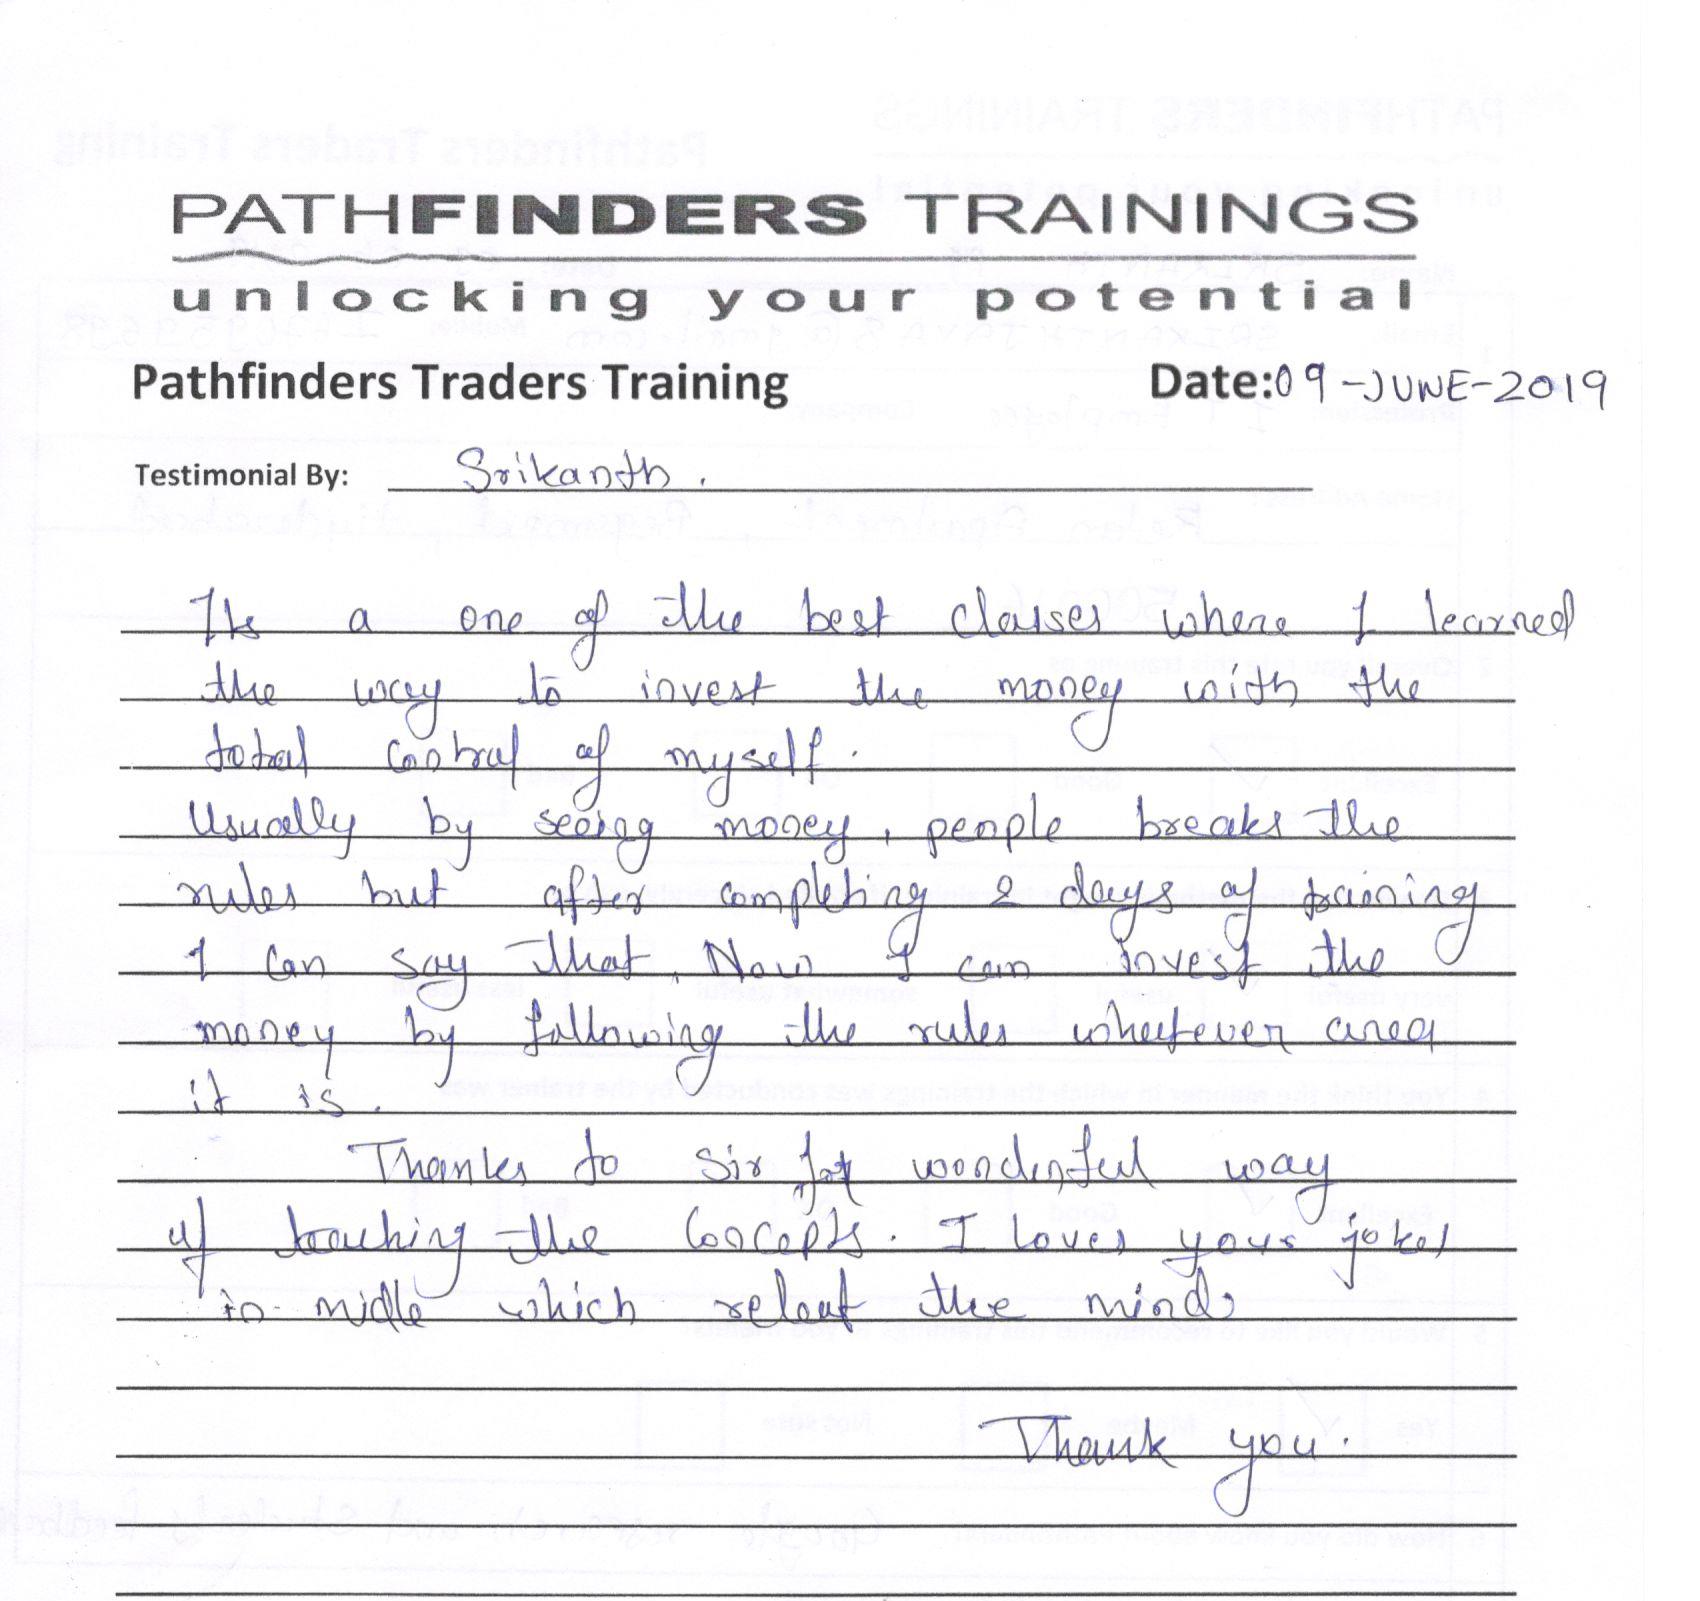 PATHFINDERS TRAININGS
unlocking your potential
Pathfinders Traders Training Date:09-JUNE-2019
Testimonial By: Srikanth.
Its a one of the best classes where I learned
the way to invest the money with the
total control of myself.
Usually by seeing money, people breaks the
rules but after completing 2 days of training
I can say that, Now I can invest the
money by following the rules whatever area
it is.
Thanks to Sir for wonderful way
of teaching the Concepts. I loves your jokes
in midle which releat the mind.
Thank you.